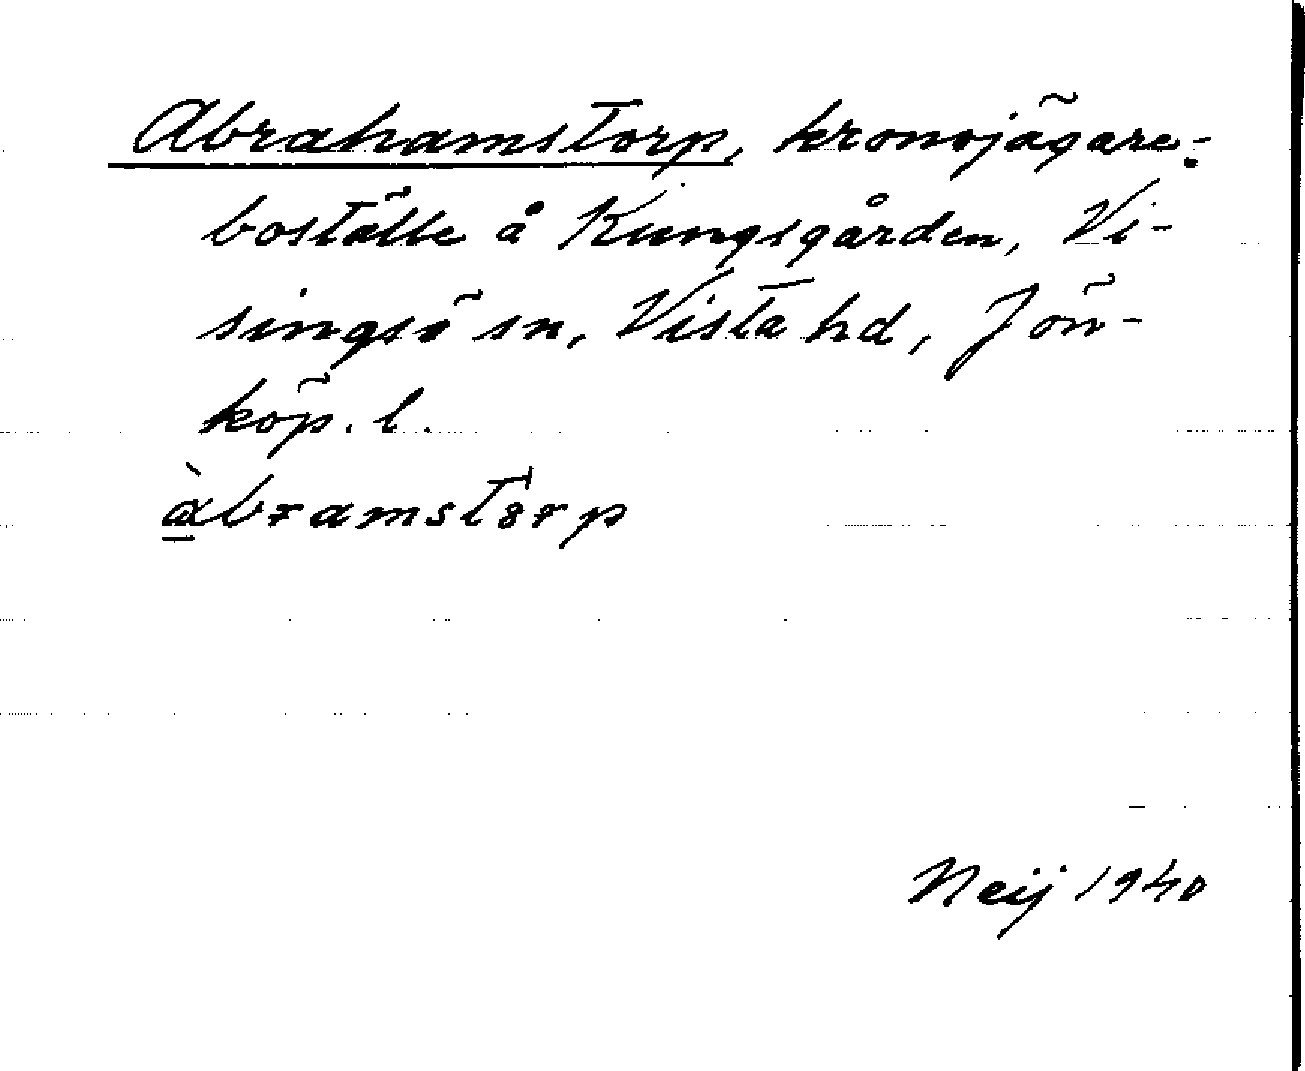 Abrahamstorp, kronojägare-
boställe å Kungsgården, Vi-
singsö sn, Vista hd, Jön-
köp. l.
àbramstårp
Neij 1940